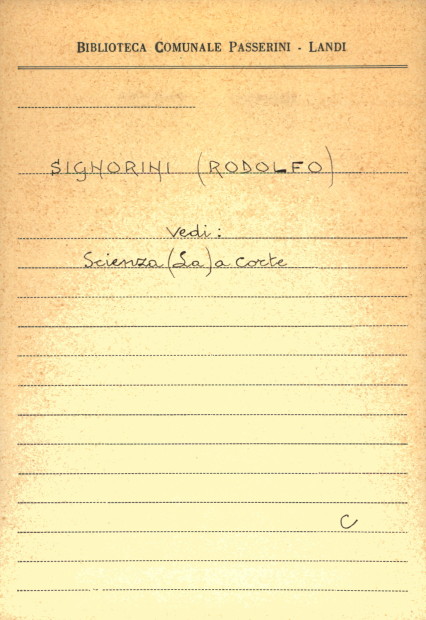 BIBLIOTECA COMUNALE PASSERINI - LANDI
SIGNORINI (RODOLFO)
Vedi:
Scienza (La) a corte
C